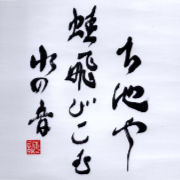 古池や
蛙飛びこむ
水の音